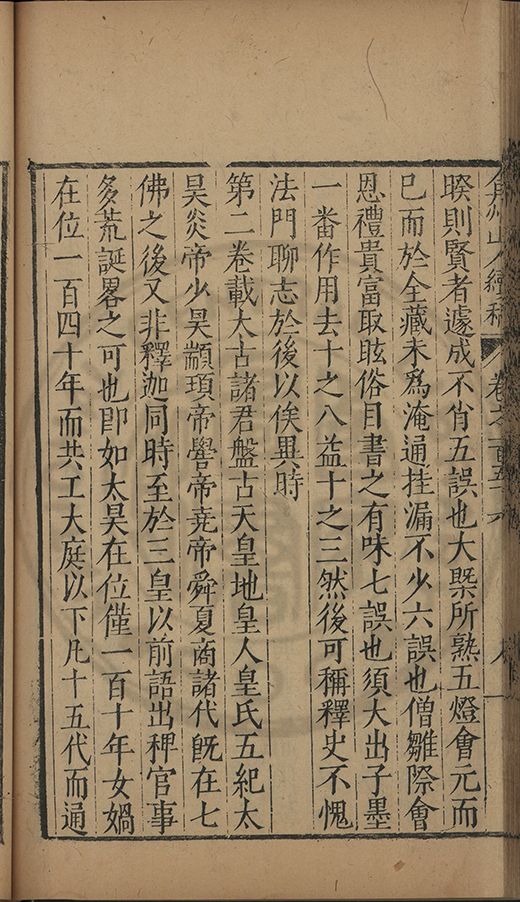 弇州山人續稿 卷之一百五十六 八
睽則賢者遽成不肖五誤也大槩所熟五燈會元而
已而於全藏未爲淹通挂漏不少六誤也僧雖際會
恩禮貴富取眩俗目書之有味七誤也須大出子墨
一番作用去十之八益十之三然後可稱釋史不愧
法門聊志於後以俟異時
第二卷載大古諸君盤古天皇地皇人皇氏五紀太
昊炎帝少昊顓頊帝嚳帝堯帝舜夏商諸代旣在七
佛之後又非釋迦同時至於三皇以前語出稗官事
多荒誕畧之可也卽如太昊在位僅一百十年女媧
在位一百四十年而共工大庭以下凡十五代而通